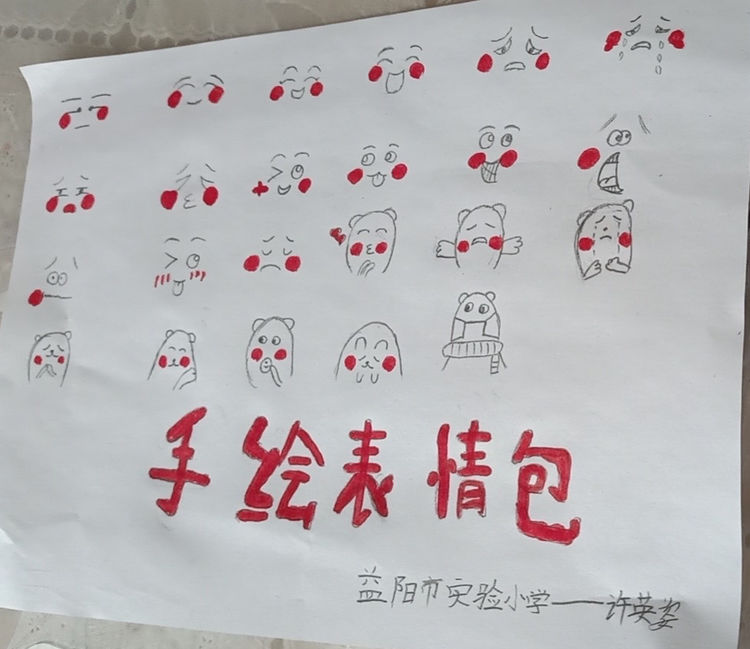 手绘表情包
益阳市实验小学——许英姿